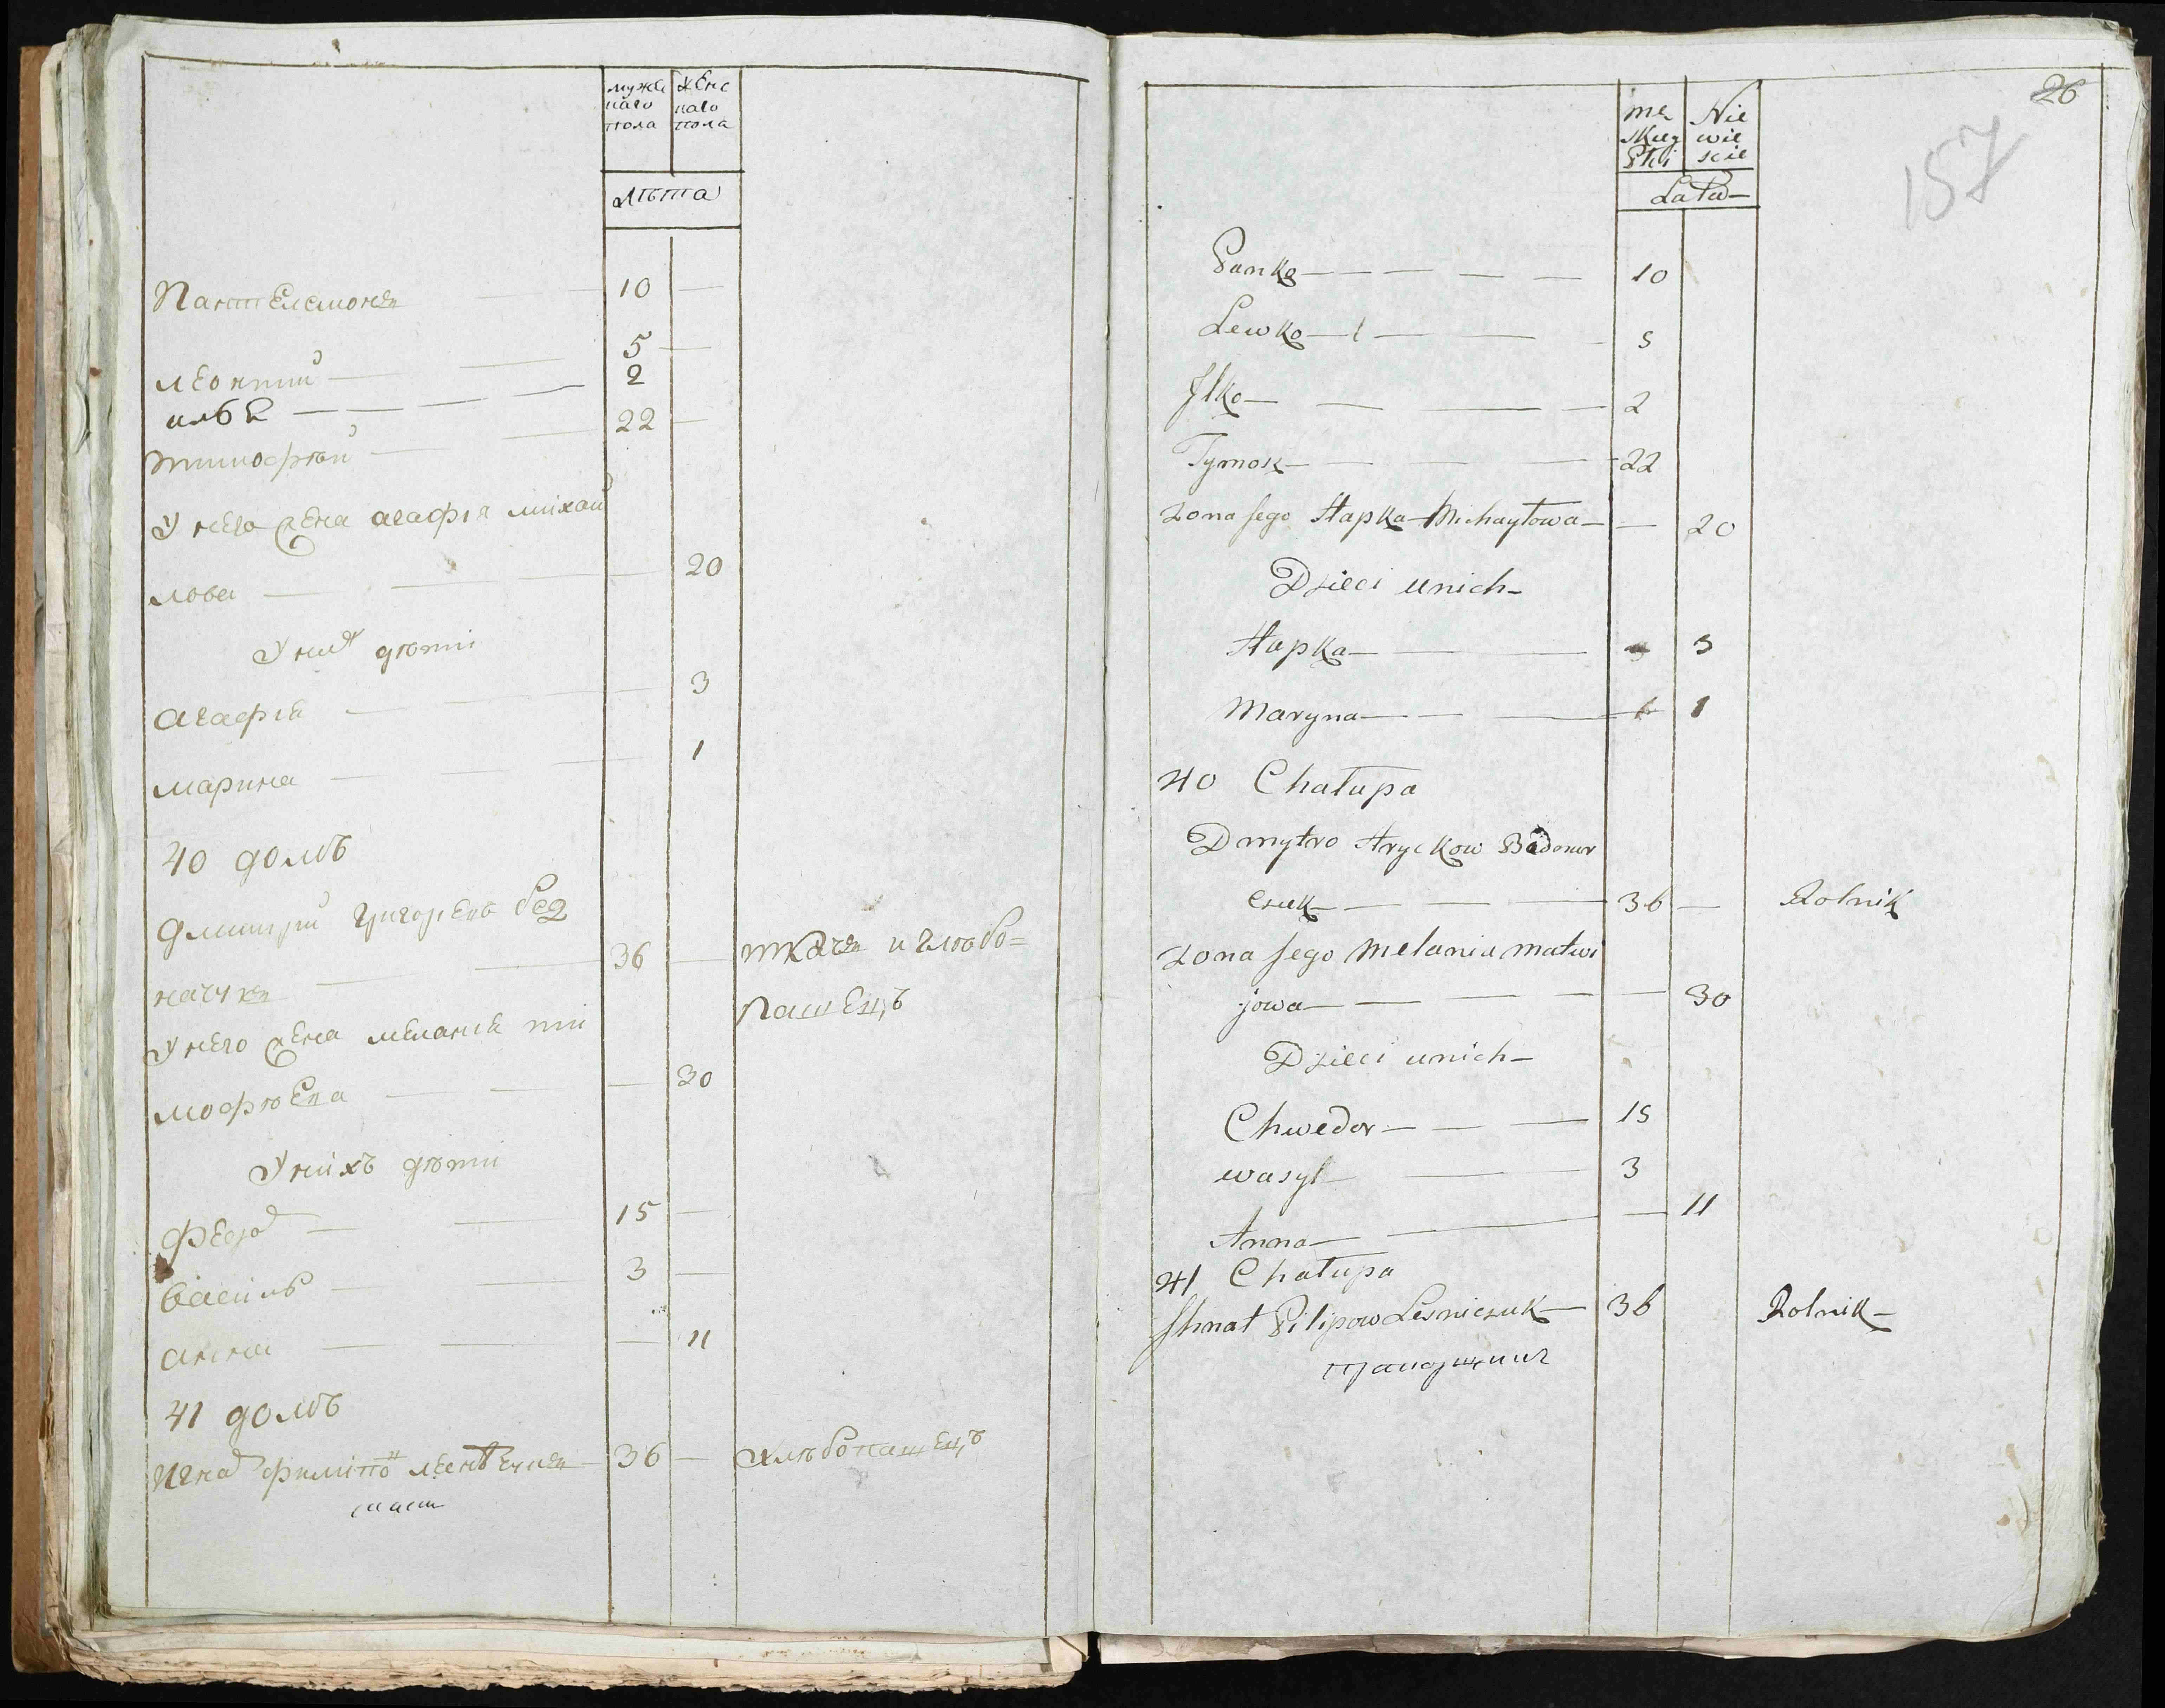 мужескаго пола
женскаго пола
лѣта
Пантелемонъ — 10 —
леонтий — 5 —
илья — 2
тимофѣй — 22 —
У него жена агафія михай
лова — 20
У них дѣти
агафія — 3
марина — 1
40 домъ
дмитрий григоревъ без
36 — ткачъ и хлѣбо=
пашецъ
У него жена меланія ти
мофѣева — 30
У нихъ дѣти
федор — 15 —
василь — 3 —
анна — 11
41 домъ
игнат филипов — 36 — хлѣбопашецъ
26
157
męskiey Płci
Niewieście
Lata
Panko — 10
Lewko — 5
Ilko — 2
Tymosz — 22
Zona Jego Hapka Michayłowa — 20
Dzieci unich
Hapka — 3
Maryna — 1
40 Chałupa
Dmytro Hryckow
czuk — 36 — Rolnik
Zona Jego Melania Matwi
jowa — 30
Dzieci unich
Chwedor — 15
wasyl — 3
Anna — 11
41 Chałupa
Ihnat Pilipow Lesniczuk — 36 Rolnik